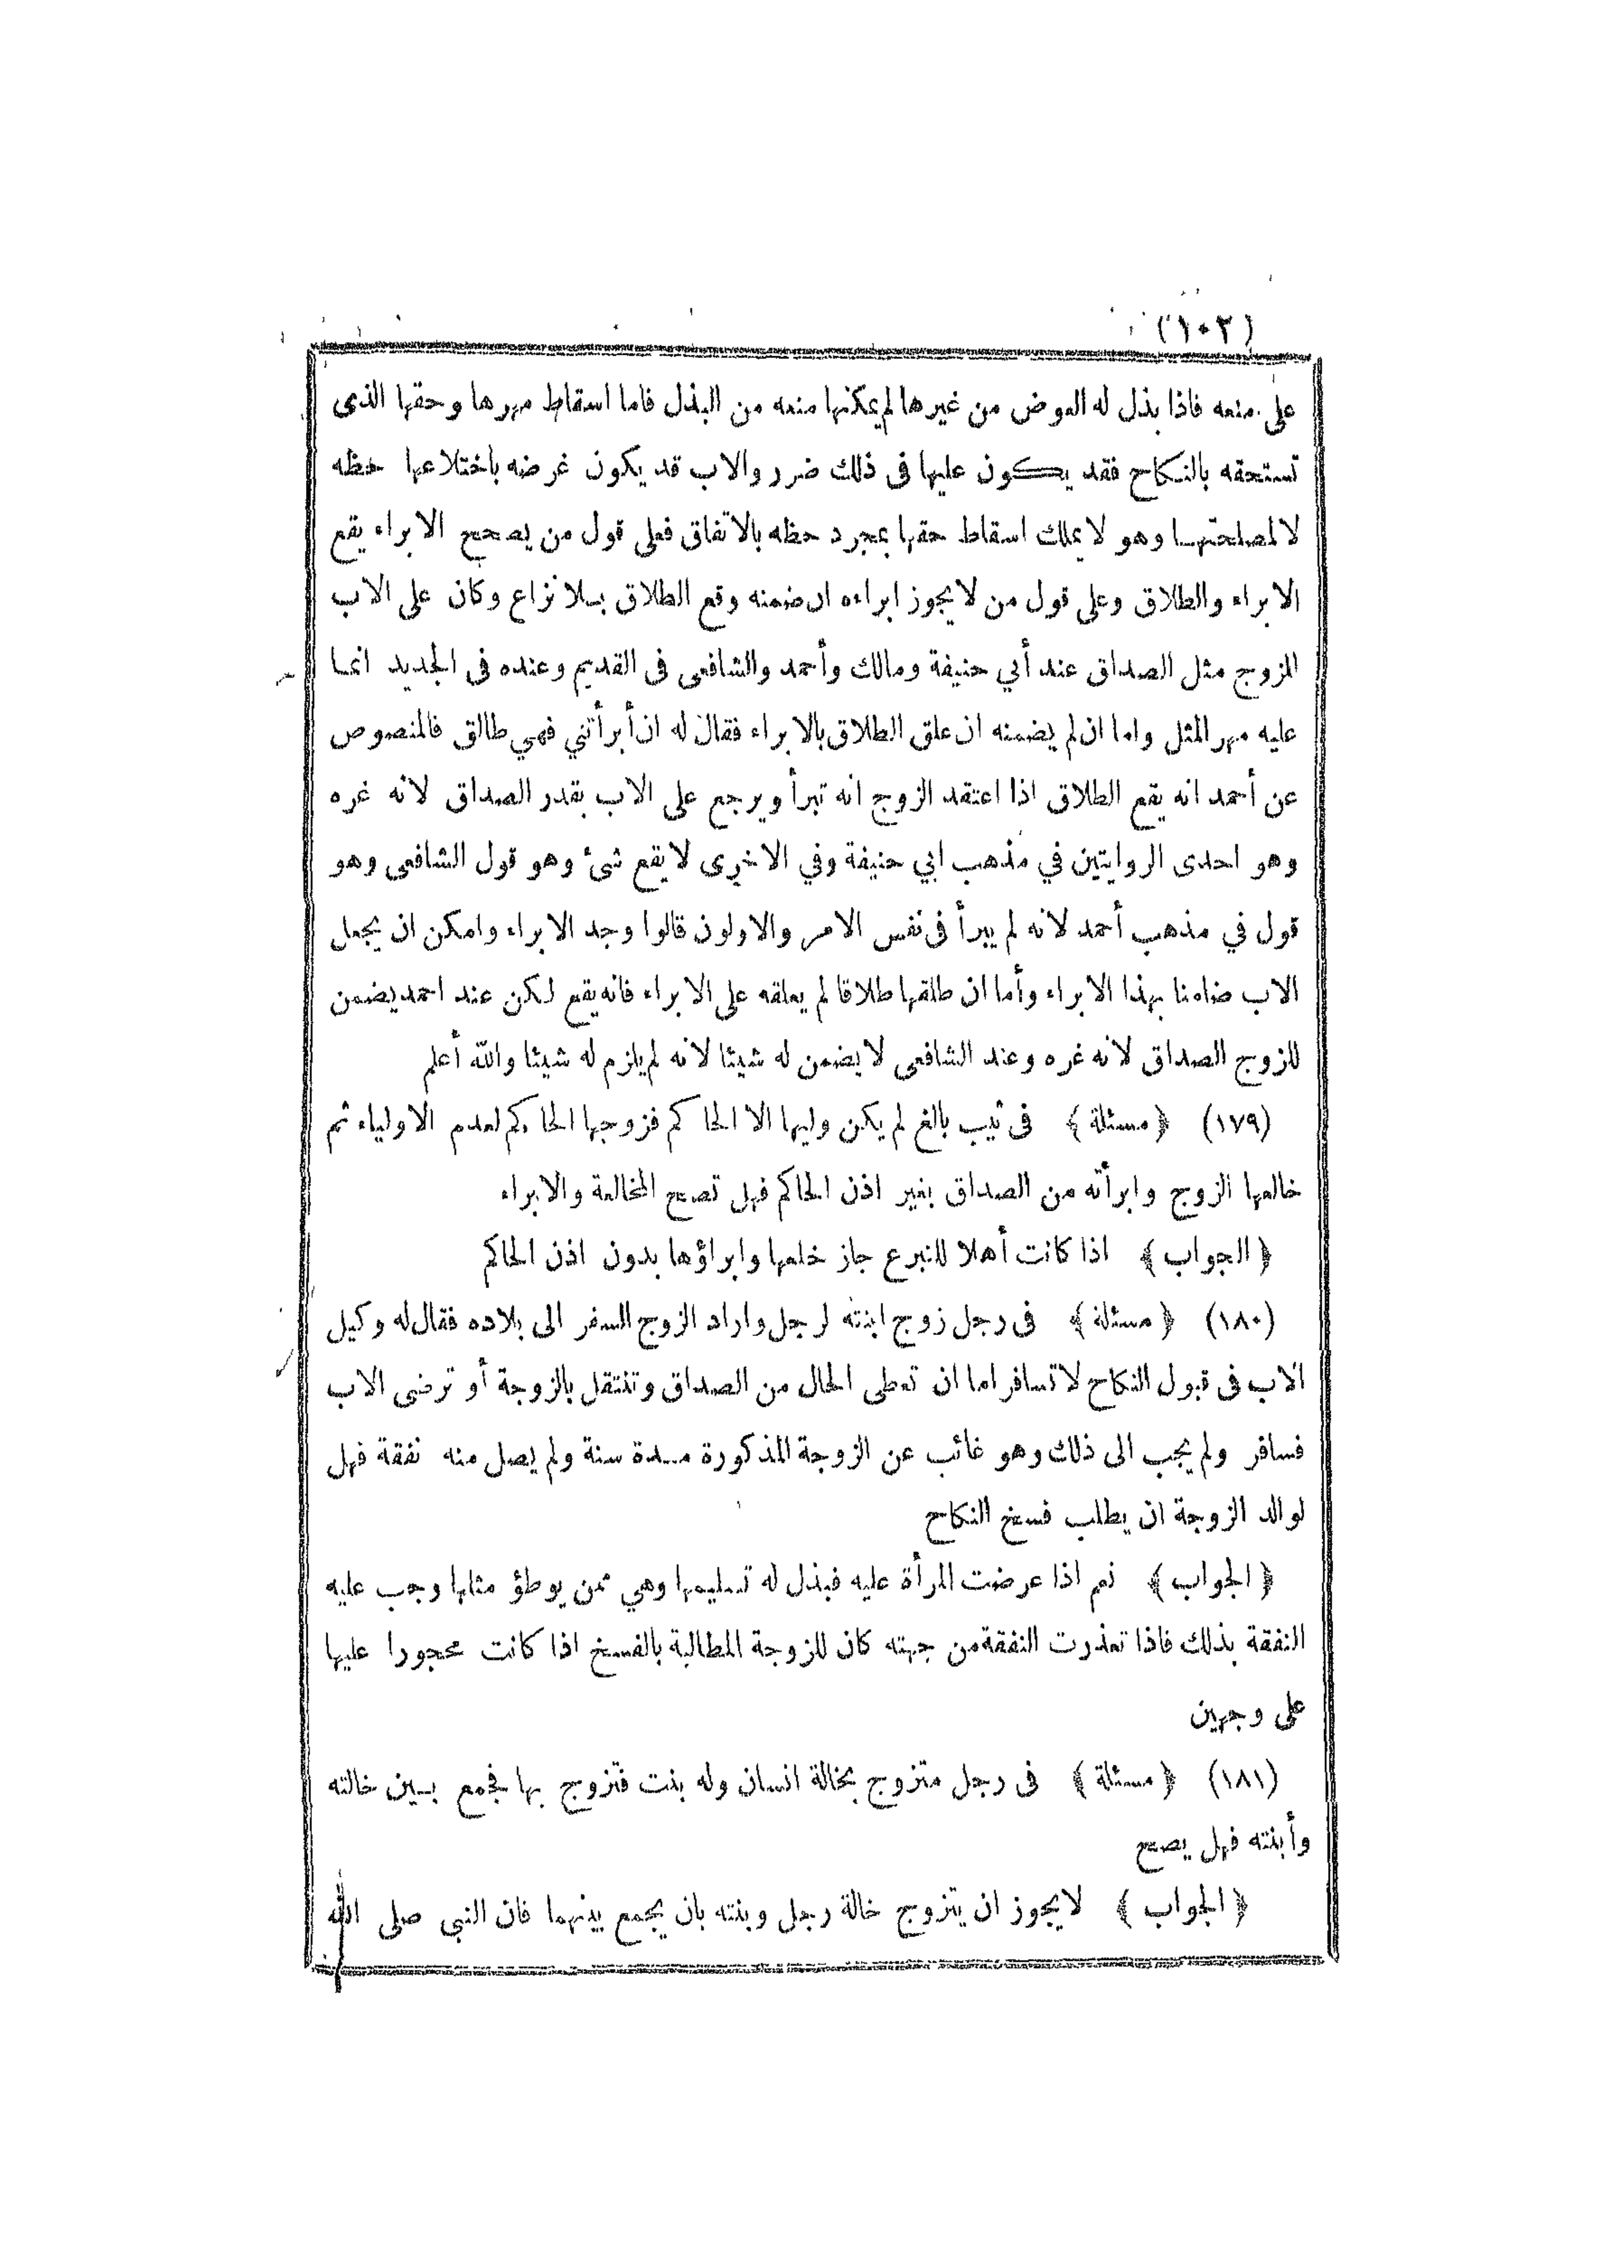 (١٠٢)
على منعه فاذا بذل له العوض من غيرها لم يمكنها منعه من البذل فاما اسقاط مهرها وحقها الذى
تستحقه بالنكاح فقد يكون عليها فى ذلك ضرر والاب قد يكون غرضه باختلاعها حظه
لا لمصلحتها وهو لا يملك اسقاط حقها بمجرد حظه بالاتفاق فعلى قول من يصحح الابراء يقع
الابراء والطلاق وعلى قول من لا يجوز ابراءه ان ضمنه وقع الطلاق بلا نزاع وكان على الاب
للزوج مثل الصداق عند أبي حنيفة ومالك وأحمد والشافعى فى القديم وعنده فى الجديد انما
عليه مهر المثل واما ان لم يضمنه ان علق الطلاق بالابراء فقال له ان أبرأتني فهي طالق فالمنصوص
عن أحمد انه يقع الطلاق اذا اعتقد الزوج انه تبرأ ويرجع على الاب بقدر الصداق لانه غره
وهو احدى الروايتين في مذهب ابي حنيفة وفي الاخرى لا يقع شئ وهو قول الشافعى وهو
قول في مذهب أحمد لانه لم يبرأ فى نفس الامر والاولون قالوا وجد الابراء وامكن ان يجعل
الاب ضامنا بهذا الابراء وأما ان طلقها طلاقا لم يعلقه على الابراء فانه يقع لكن عند احمد يضمن
للزوج الصداق لانه غره وعند الشافعى لا يضمن له شيئا لانه لم يلزم له شيئا والله أعلم
(١٧٩) ﴿ مسئلة ﴾ فى ثيب بالغ لم يكن وليها الا الحاكم فزوجها الحاكم لعدم الاولياء ثم
خالعها الزوج وابرأته من الصداق بغير اذن الحاكم فهل تصح المخالعة والابراء
﴿ الجواب ﴾ اذا كانت أهلا للتبرع جاز خلعها وابراؤها بدون اذن الحاكم
(١٨٠) ﴿ مسئلة ﴾ فى رجل زوج ابنته لرجل واراد الزوج السفر الى بلاده فقال له وكيل
الاب فى قبول النكاح لا تسافر اما ان تعطى الحال من الصداق وتنتقل بالزوجة أو ترضى الاب
فسافر ولم يجب الى ذلك وهو غائب عن الزوجة المذكورة مدة سنة ولم يصل منه نفقة فهل
لوالد الزوجة ان يطلب فسخ النكاح
﴿ الجواب ﴾ نعم اذا عرضت المرأة عليه فبذل له تسليمها وهي ممن يوطؤ مثلها وجب عليه
النفقة بذلك فاذا تعذرت النفقة من جهته كان للزوجة المطالبة بالفسخ اذا كانت محجورا عليها
على وجهين
(١٨١) ﴿ مسئلة ﴾ فى رجل متزوج بخالة انسان وله بنت فتزوج بها فجمع بين خالته
وأبنته فهل يصح
﴿ الجواب ﴾ لا يجوز ان يتزوج خالة رجل وبنته بان يجمع بينهما فان النبى صلى الله